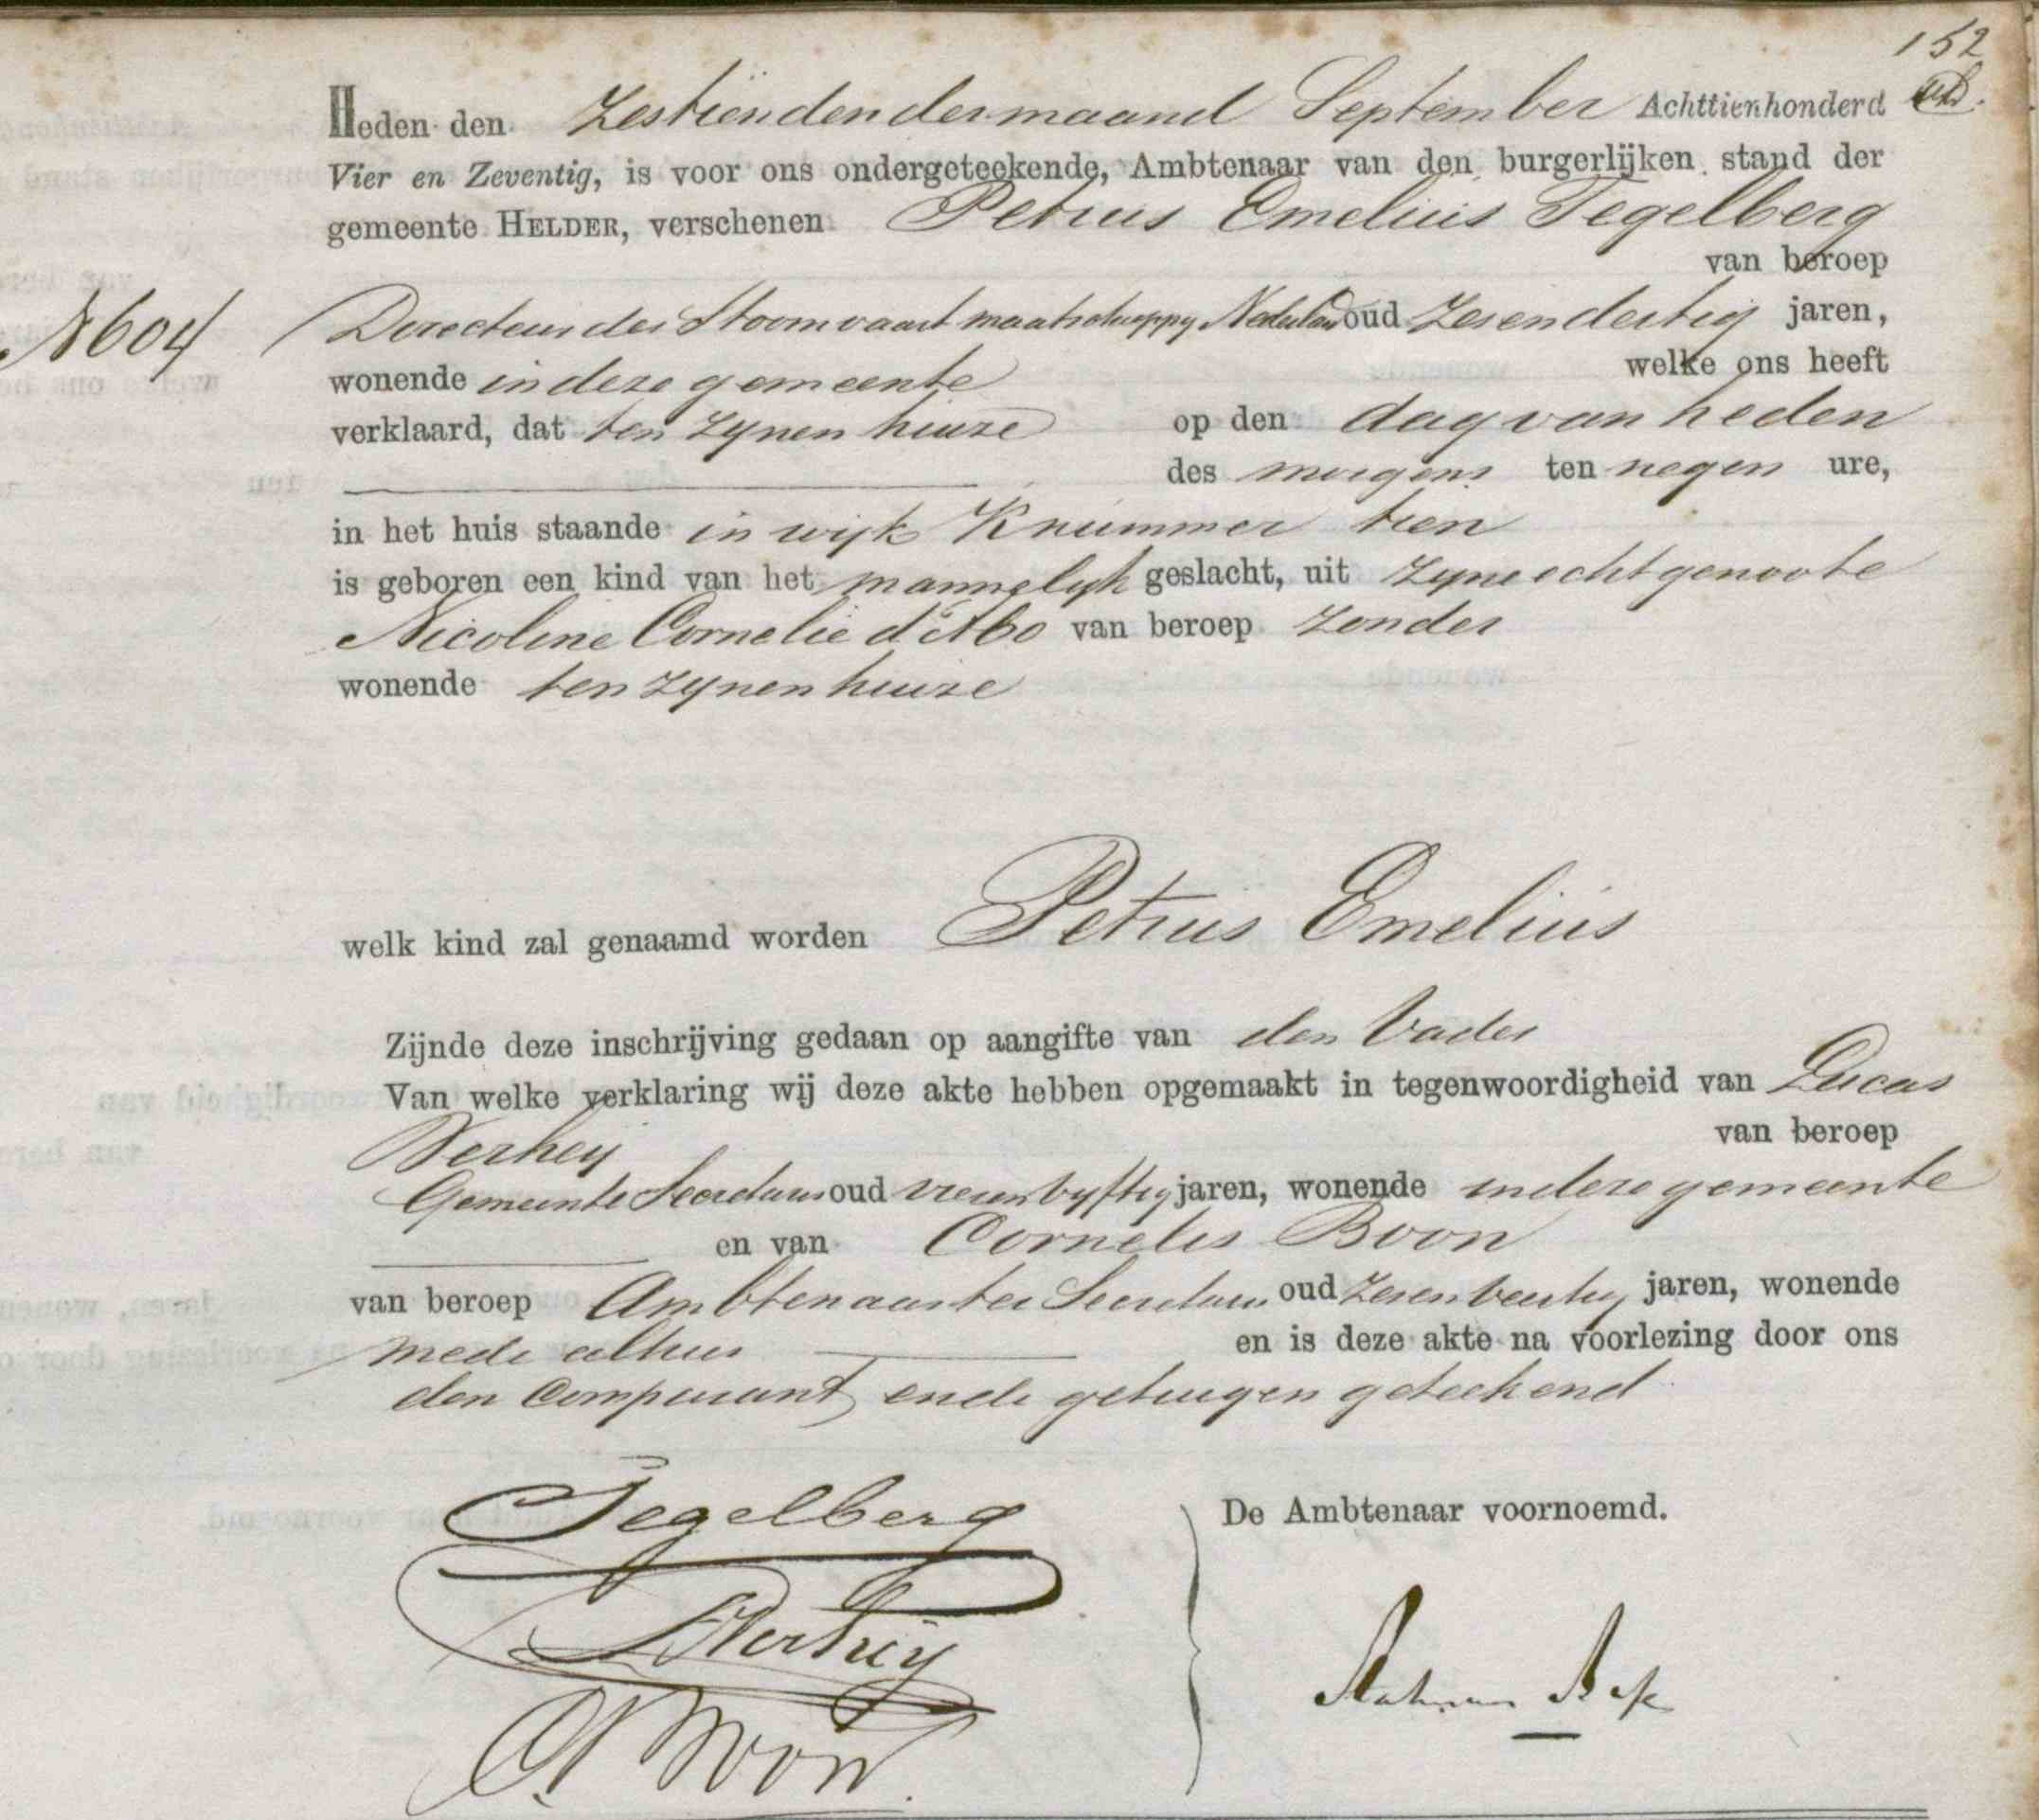 152
Heden den Zestienden der maand September Achttienhonderd
Vier en Zeventig, is voor ons ondergeteekende, Ambtenaar van den burgerlijken stand der
gemeente HELDER, verschenen Petrus Emelius Tegelberg
van beroep
N 604
Directeur der Stoomvaart maatschappy Nederland oud Zesendertig jaren,
wonende in deze gemeente welke ons heeft
verklaard, dat ten zynen huize op den dag van heden
des morgens ten negen ure,
in het huis staande in wijk K nummer tien
is geboren een kind van het mannelyk geslacht, uit zyne echtgenoote
Nicoline Cornelie d'Abo van beroep zonder
wonende ten zynen huize
welk kind zal genaamd worden Petrus Emelius
Zijnde deze inschrijving gedaan op aangifte van den Vader
Van welke verklaring wij deze akte hebben opgemaakt in tegenwoordigheid van Lucas
Verhey van beroep
Gemeente Secretaris oud vierenvyftig jaren, wonende in deze gemeente
en van Cornelis Boon
van beroep Ambtenaar ter Secretarie oud zesenveertig jaren, wonende
mede alhier en is deze akte na voorlezing door ons
den Comparant en de getuigen geteekend
Tegelberg
De Ambtenaar voornoemd.
LVerhey
Boon